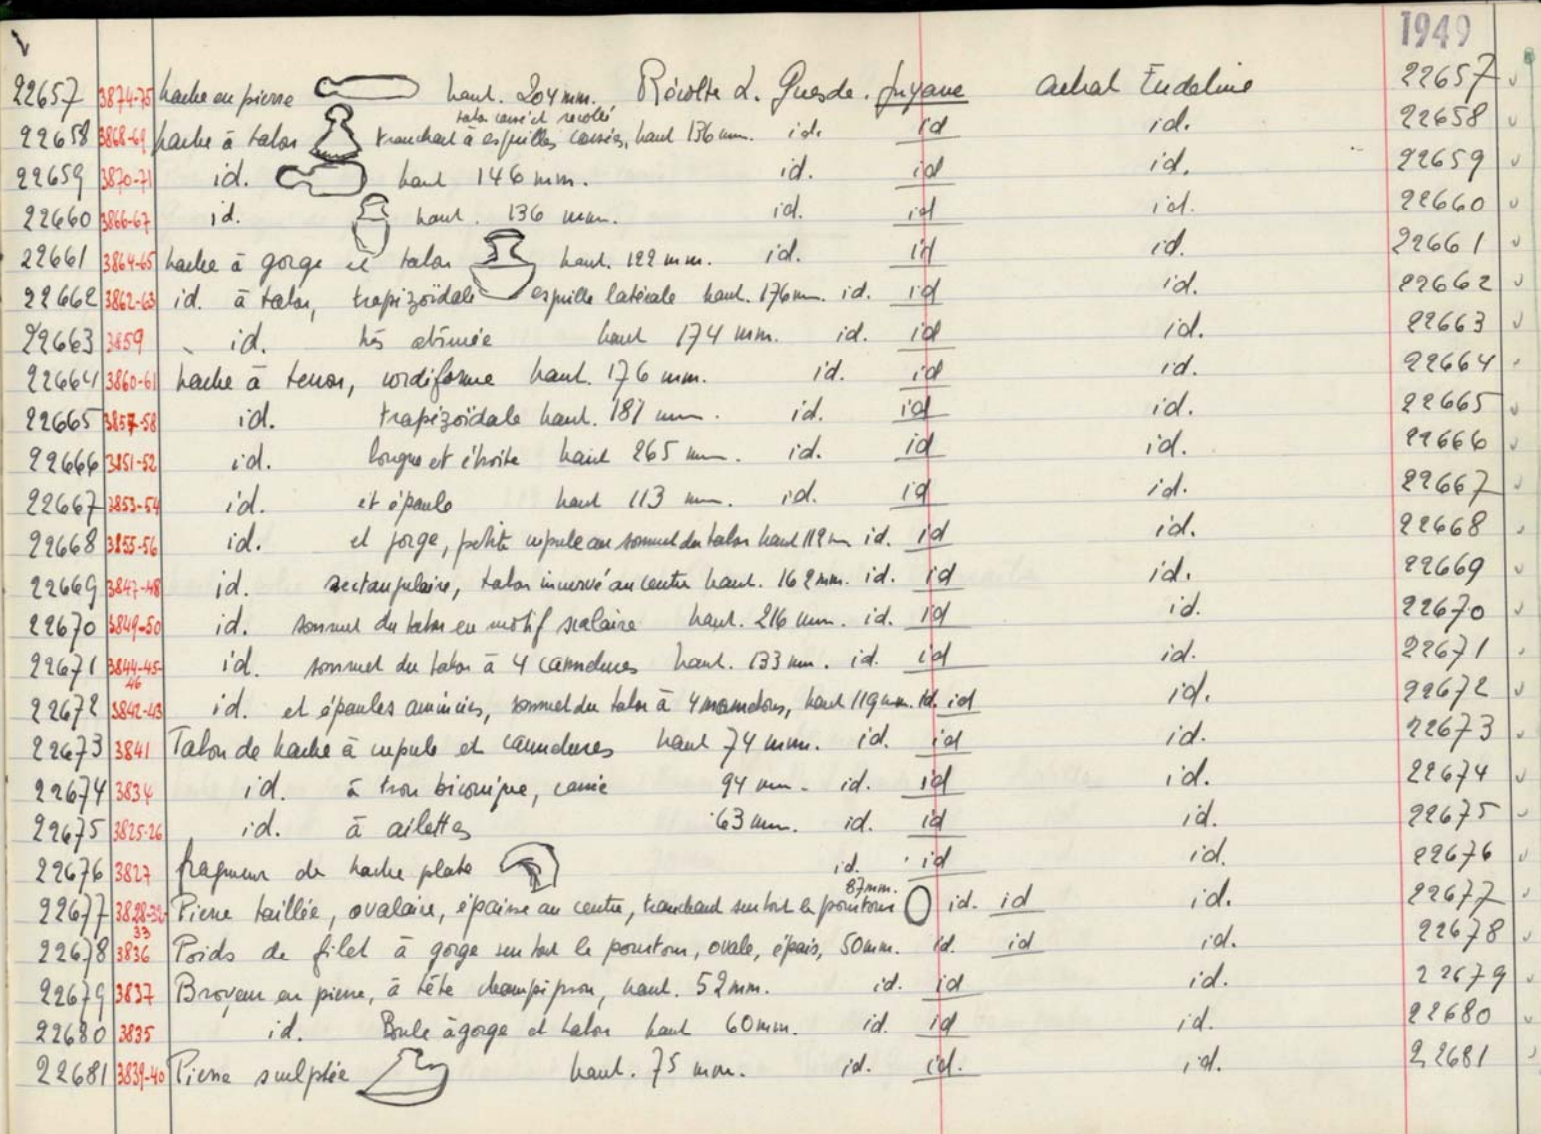 1949
22657 3874-75 hache en pierre haut. 204 mm. Récolte L. Guesde. Guyane achat Endeline 22657
talon cassé et recollé
22658 3868-69 hache à talon tranchant à esquilles cassées, haut 136 mm. id. id id. 22658
22659 3870-71 id. haut 146 mm. id. id id. 22659
22660 3866-67 id. haut. 136 mm. id. id id. 22660
22661 3864-65 hache à gorge et talon haut. 122 mm. id. id id. 22661
22662 3862-63 id. à talon, trapizoïdale esquille latérale haut. 176 mm. id. id id. 22662
22663 3859 id. très abimée haut 174 mm. id. id id. 22663
22664 3860-61 hache à tenon, cordiforme haut. 176 mm. id. id id. 22664
22665 3857-58 id. trapizoïdale haut. 181 mm. id. id id. 22665
22666 3851-52 id. longue et étroite haut 265 mm. id. id id. 22666
22667 3853-54 id. et épaule haut 113 mm. id. id id. 22667
22668 3855-56 id. et gorge, petite cupule au sommet du talon haut 112 mm id. id id. 22668
22669 3847-48 id. rectangulaire, talon incurvé au centre haut. 162 mm. id. id id. 22669
22670 3849-50 id. sommet du talon en motif scalaire haut. 216 mm. id. id id. 22670
22671 3844-45-46 id. sommet du talon à 4 cannelures haut. 133 mm. id. id id. 22671
22672 3842-43 id. et épaules amincies, sommet du talon à 4 mamelons, haut 119 mm. id. id id. 22672
22673 3841 Talon de hache à cupule et cannelures haut 74 mm. id. id id. 22673
22674 3834 id. à trou biconique, cassé 94 mm. id. id id. 22674
22675 3825-26 id. à ailettes 63 mm. id. id id. 22675
22676 3827 fragment de hache plate id. id id. 22676
87 mm.
22677 3828-32-33 Pierre taillée, ovalaire, épaisse au centre, tranchant sur tout le pourtour id. id id. 22677
22678 3836 Poids de filet à gorge sur tout le pourtour, ovale, épais, 50 mm. id. id id. 22678
22679 3837 Broyeur en pierre, à tête champignon, haut. 52 mm. id. id id. 22679
22680 3835 id. Boule à gorge et talon haut 60 mm. id. id id. 22680
22681 3839-40 Pierre sculptée haut. 75 mm. id. id. id. 22681